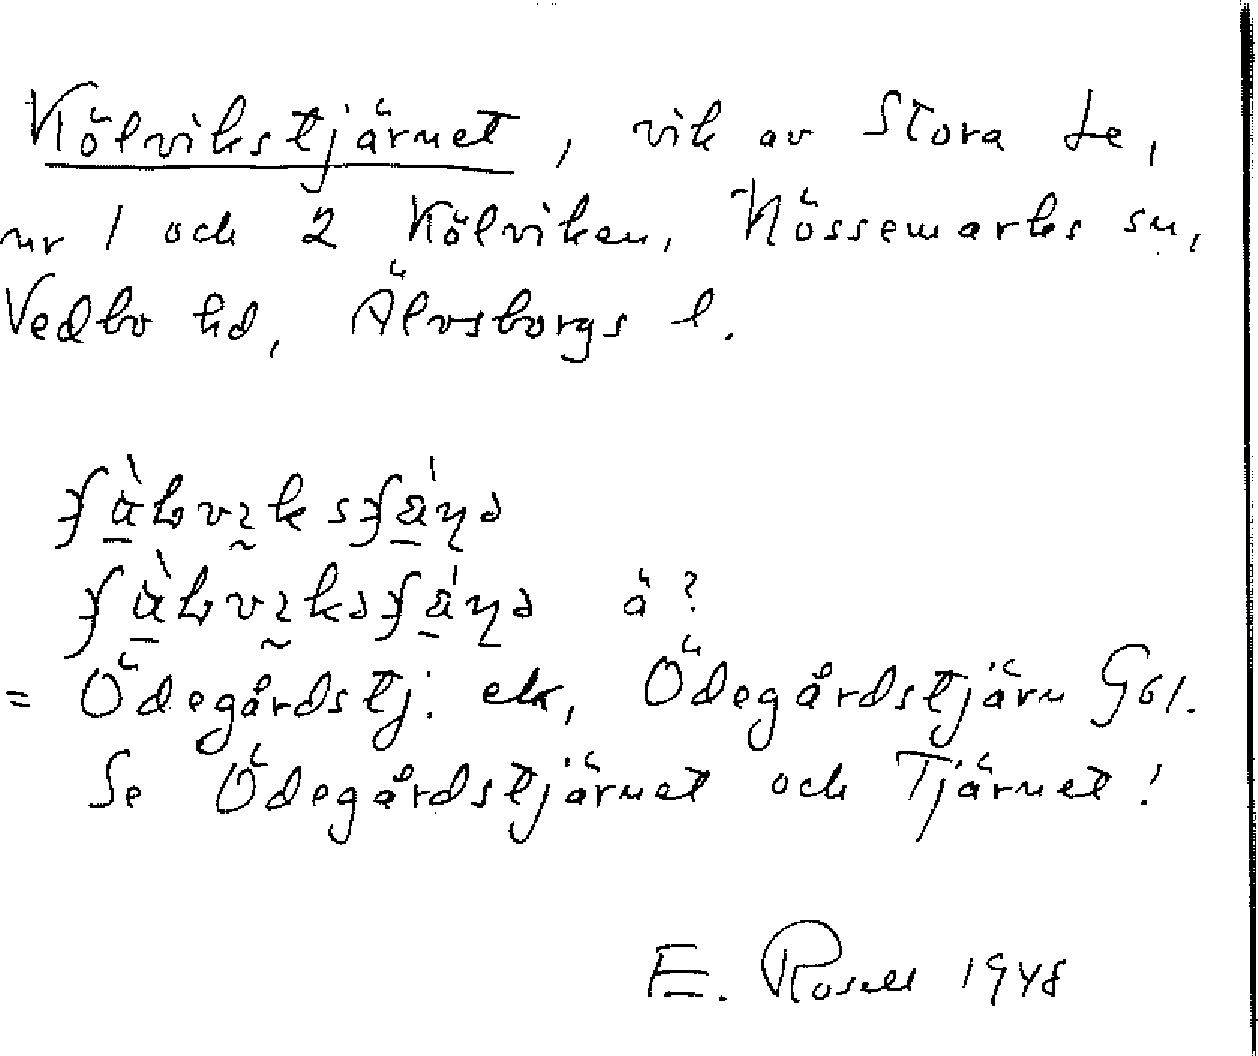 Kölvikstjärnet, vik av Stora Le,
nr 1 och 2 Kölviken, Nössemarks sn,
Vedbo hd, Älvsborgs l.
ä?
= Ödegårdstj. ek, Ödegårdstjärn GSI.
Se Ödegårdstjärnet och Tjärnet!
E. Rosell 1948